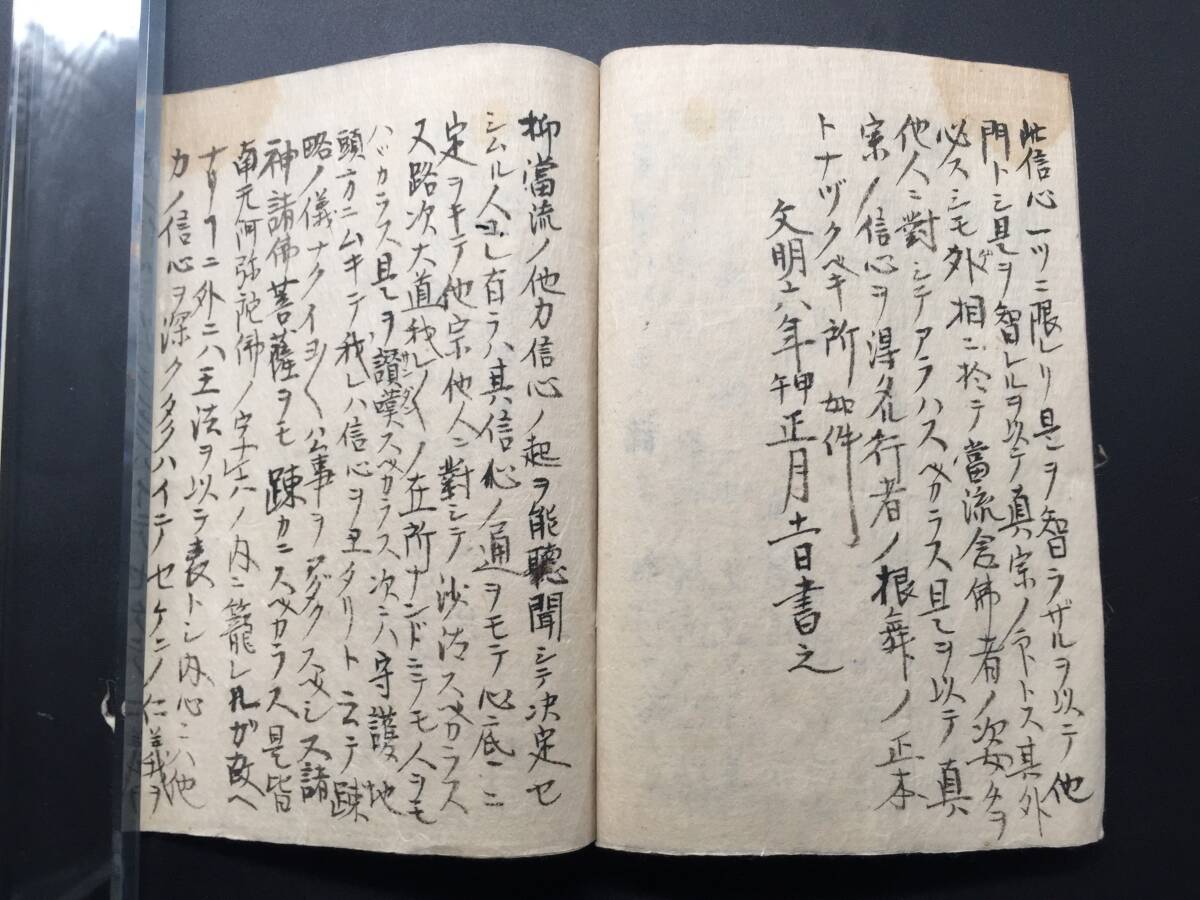 此信心一ツニ限レリ是ヲ智ラザルヲ以テ他
門トシ是ヲ智レルヲ以テ真宗ノトス其外
必スシモ外相ニ於テ當流念佛者ノ姿タヲ
他人ニ對シテアラハスヘカラス是ヲ以テ真
宗ノ信心ヲ得タル行者ノ根舞トノ正本
トナヅクベキ所如件
文明六年甲午正月十一日書之
抑當流ノ他力信心ノ起ヲ能聽聞シテ決定セ
シムル人コレ有ラハ其信心ノ通ヲモテ心底ニ
定ヲキテ他宗他人ニ對シテ沙汰スベカラス
又路次大道我レ〱ノ在所ナンドニテモ人ヲモ
ハヾカラス是ヲ讃嘆スヘカラス次ニハ守護地
頭方ニムキテ我レハ信心ヲヱタリト云テ疎
略ノ儀ナクイヨ〱公事ヲマダクスヘシ又諸
神諸佛菩薩ヲモ疎カニスヘカラス是皆
南无阿弥陀佛ノ六字ノ内ニ籠レルガ故ヘ
ナリコトニ外ニハ王法ヲ以テ表トシ内心ニハ他
力ノ信心ヲ深クタクハイテセケンノ仁義ヲ